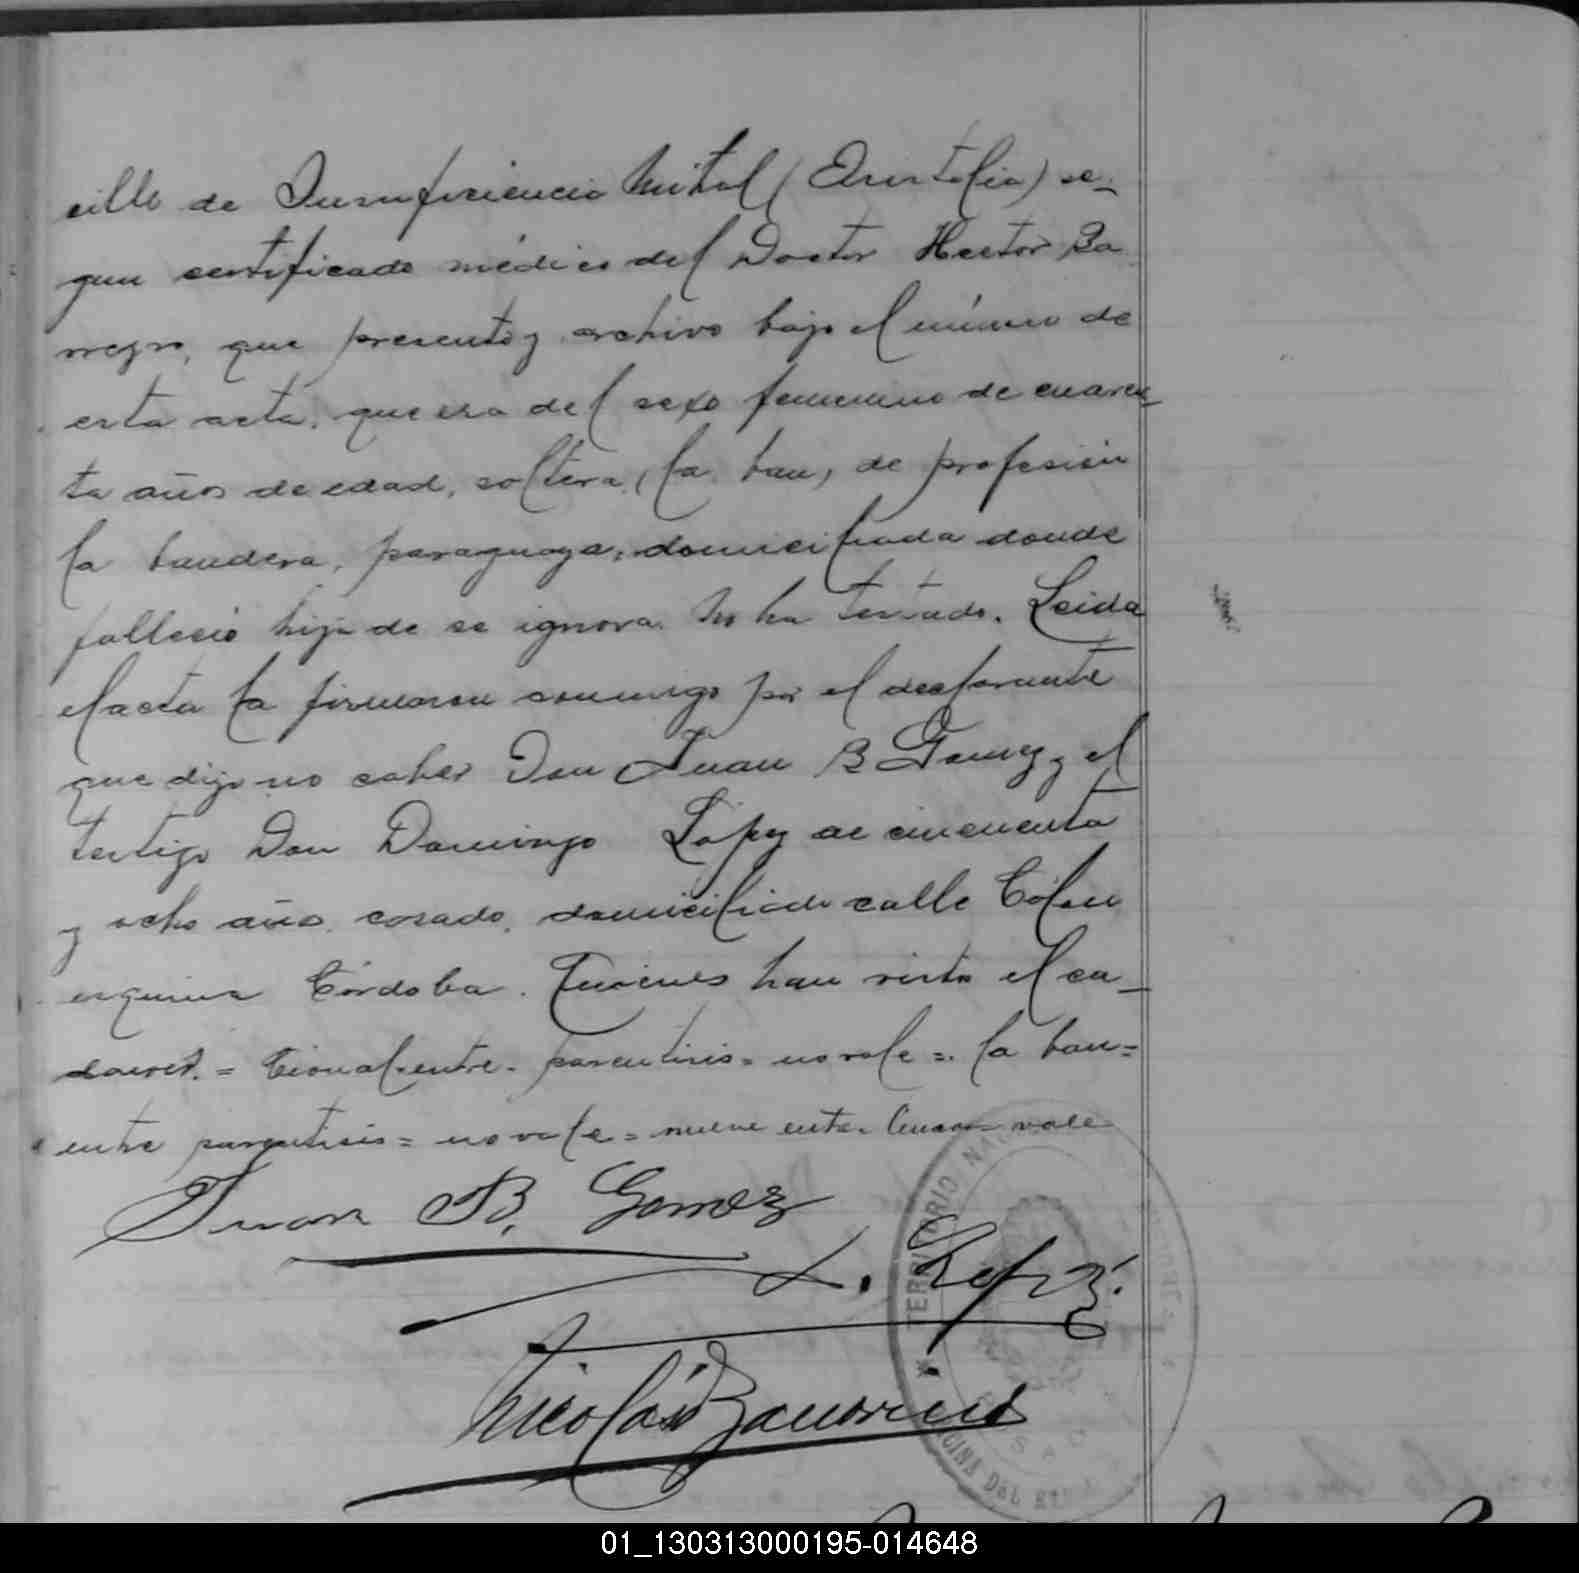 cillo de Insuficiencia Mitral (Asistolia) se-
gun certificado médico del Doctor Hector Ba
rreyro, que presento y archivo bajo el número de
esta acta, que era del sexo femenino de cuaren-
ta años de edad, soltera, (la ban) de profesión
la bandera, paraguaya, domiciliada donde
falleció hija de se ignora. No ha testado. Leida
el acta la firmaron conmigo por el declarante
que dijo no saber Don Juan B Gomez y el
testigo Don Domingo López de cincuenta
y ocho años, casado, domiciliado calle Cólon
esquina Córdoba. Quienes han visto el ca-
daver. = entre parentisis = no vale =. la ban =
entre parentisis = no vale = nueve entre lineas = vale
Juan B. Gomez
D. Lopez.
Nicolás
TERRITORIO NA
OFICINA DEL